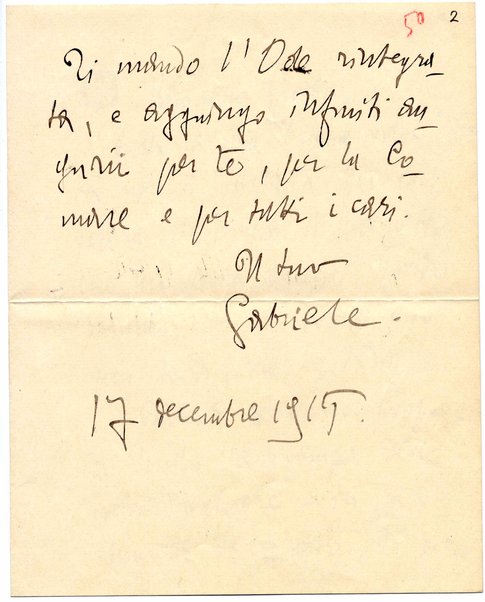 50 2
Ti mando l'Ode rintegra-
ta, e aggiungo infiniti au-
gurii per te, per la Co-
mare e per tutti i cari.
Il tuo
Gabriele.
17 decembre 1915.